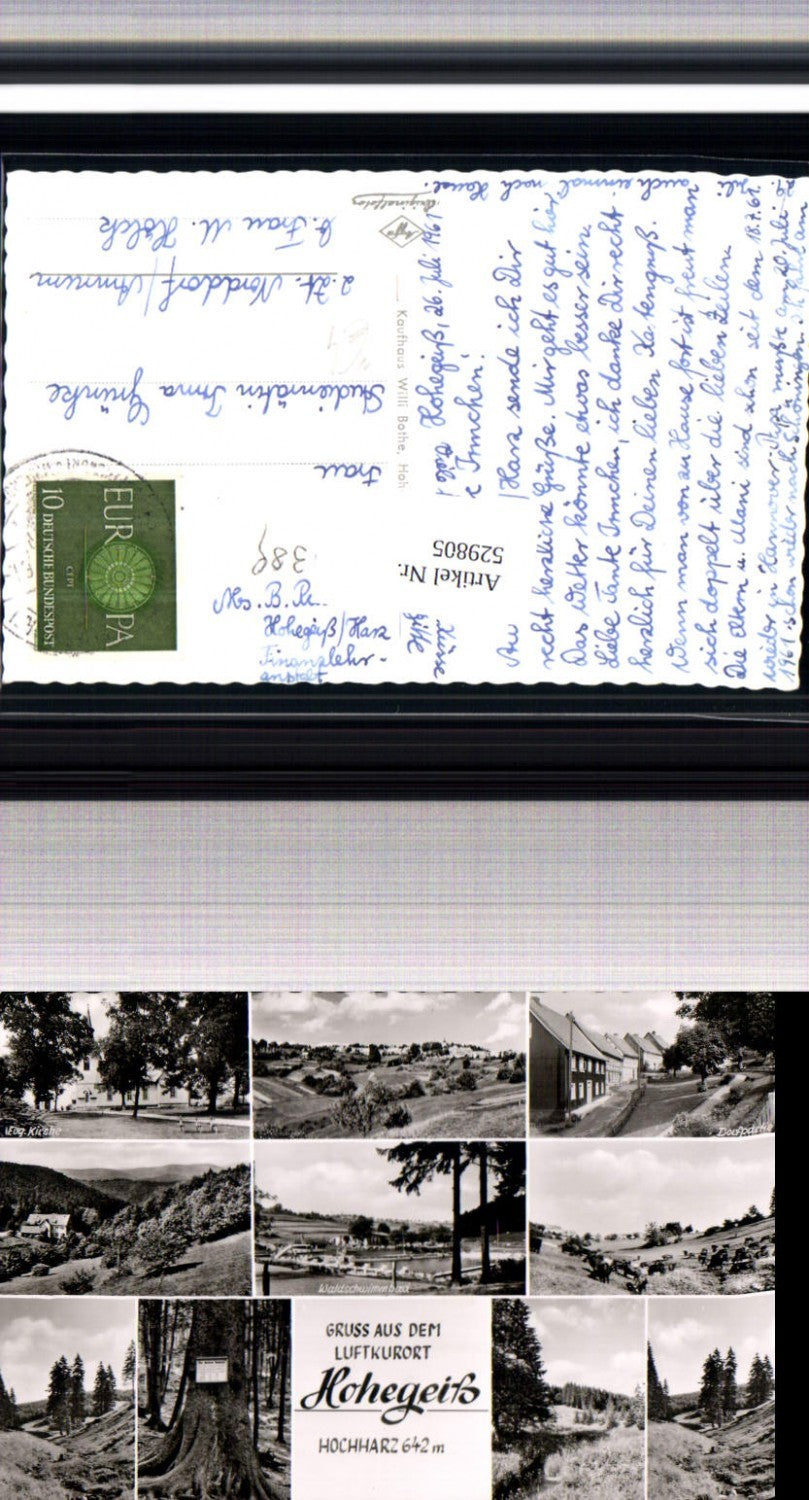 29. Juli auch einmal nach Hause.
Originalfoto
Agfa
b. Frau M. Hölck
z. Zt. Norddorf/Amrum
Studienrätin Irma Grünke
Frau
Kaufhaus Willi Bothe, Hoh
EUROPA
CEPT
10 DEUTSCHE BUNDESPOST
389
Artikel Nr.
529805
Hohegeiß/Harz
Finanzlehr-
anstalt
Hohegeiß, 26. Juli 1961
Liebe Irmchen!
Aus Harz sende ich Dir
recht herzliche Grüße. Mir geht es gut hier.
Das Wetter könnte etwas besser sein.
Liebe Tante Irmchen, ich danke Dir recht
herzlich für Deinen lieben Kartengruß.
Wenn man von zu Hause fort ist freut man
sich doppelt über die lieben Zeilen.
Die Eltern u. Mani sind schon seit dem 18.7.61
wieder in Hannover. Papa mußte am 20. Juli
1961 schon wieder nach
Evg. Kirche
Dorfpartie
Waldschwimmbad
GRUSS AUS DEM
LUFTKURORT
Hohegeiß
HOCHHARZ 642 m